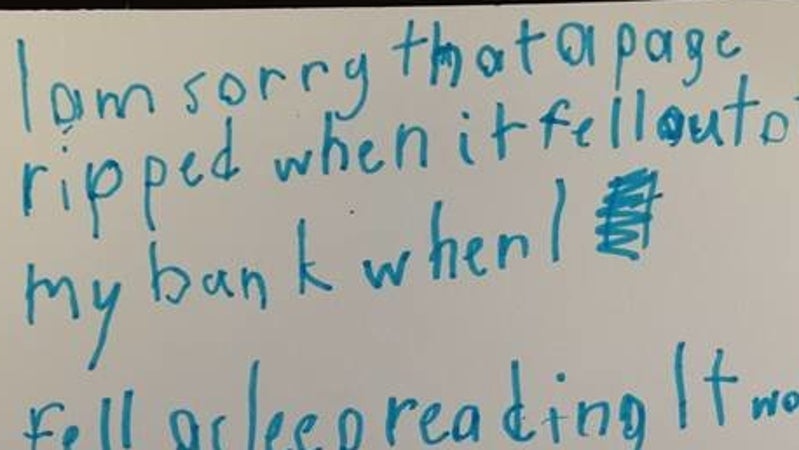 I am sorry that a page
ripped when it fell out o
my bank when I
fell asleep reading It wa